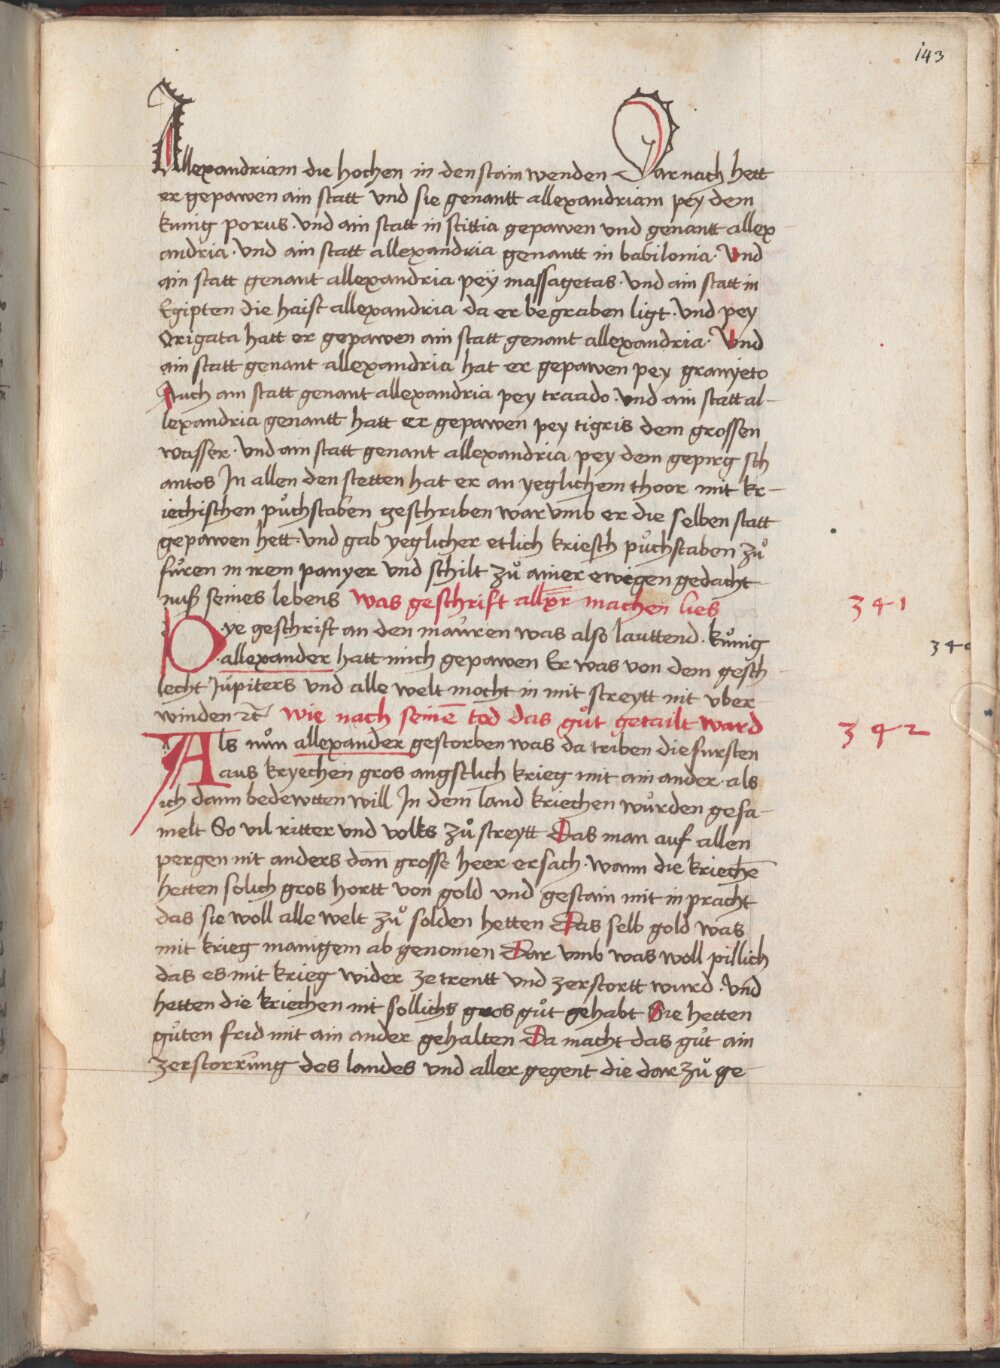 143
Allexandriam die hochen in den stain wenden Dar nach hett
er gepawen ain statt vnd sie genantt allexandriam pey dem
kunig porus · vnd ain statt in stittia gepawen vnd genantt allex
andria · vnd ain statt allexandria genantt in babilonia · Vnd
ain statt genant allexandria peÿ massagetas · vnd ain statt in
Egipten die haist allexandria da er begraben ligt · vnd pey
Origata hatt er gepawen ain statt genant allexandria · Vnd
ain statt genant allexandria hat er gepawen pey granyeto
Auch ain statt genant allexandria pey traado · vnd ain statt al-
lexandria genantt hatt er gepawen pey tigris dem grossen
wasser · vnd ain statt genant allexandria pey dem gepirg sch
antos In allen den stetten hat er an yeglichem thoor mit kr-
iechischen půchstaben geschriben war vmb er die selben statt
gepawen hett · vnd gab yeglicher etlich kriesch půchstaben zů
fůren in irem panyer vnd schilt zů ainer ewigen gedacht
nuß seines lebens was geschrift allxr̄ machen lies
341
Dye geschrift an den mauren was also lauttend · kůnig
340
allexander hatt mich gepawen Er was von dem gesch
lecht Jupiters vnd alle welt mocht in mit streytt nit vber
winden ꝛc̄ wie nach seinē tod das gůt getailt ward
342
Als nůn allexander gestorben was da triben die fursten
aus kryechen gros angstlich krieg mit ain ander · als
ich dann bedewtten will In dem land kriechen wůrden gesa-
melt So vil ritter vnd volks zů streytt Das man auf allen
pergen nit anders dan̄ grosse heer ersach · wann die kriechē
hetten solich gros hortt von gold vnd gestain mit in pracht
das sie woll alle welt zů solden hetten Das selb gold was
mit krieg manigem ab genomen Dar vmb was woll pillich
das es mit krieg wider ze trentt vnd zerstortt wurd · Vnd
hetten die kriechen nit sollichs gros gůt gehabt Sie hetten
gůten frid mit ain ander gehalten Da macht das gůt ain
zerstorrung des landes vnd aller gegent die dar zů ge